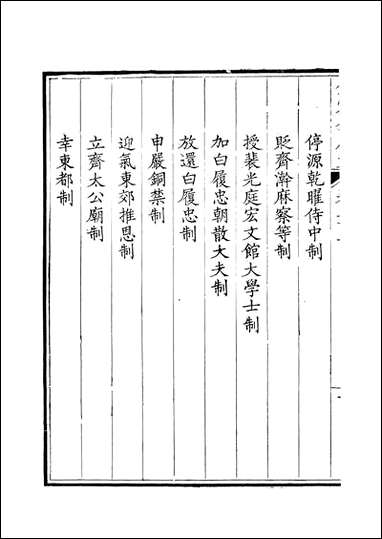 停源乾曜侍中制
貶齊澣麻察等制
授裴光庭宏文館大學士制
加白履忠朝散大夫制
放還白履忠制
申嚴銅禁制
迎氣東郊推恩制
立齊太公廟制
幸東都制